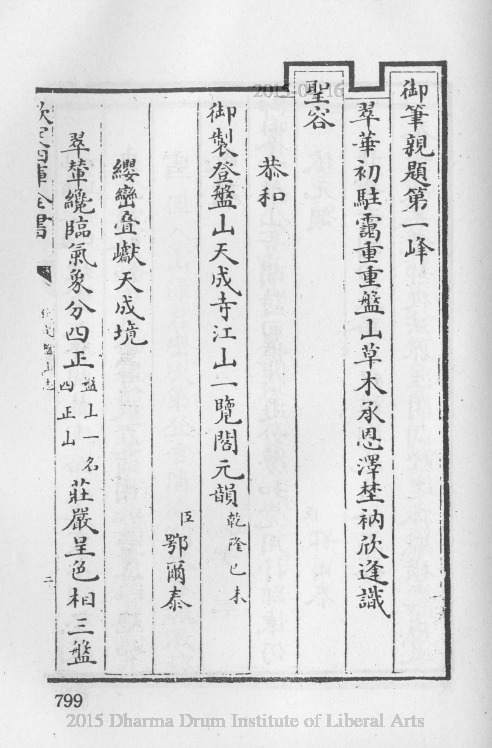 御筆親題第一峰
翠華初駐靄重重盤山草木承恩澤埜衲欣逢識
聖容
恭和
御製登盤山天成寺江山一覽閣元韻乾隆己未
臣鄂爾泰
纓巒疊巘天成境
翠輦纔臨氣象分四正盤山一名四正山莊嚴呈色相三盤
欽定四庫全書
二
799
2015 Dharma Drum Institute of Liberal Arts